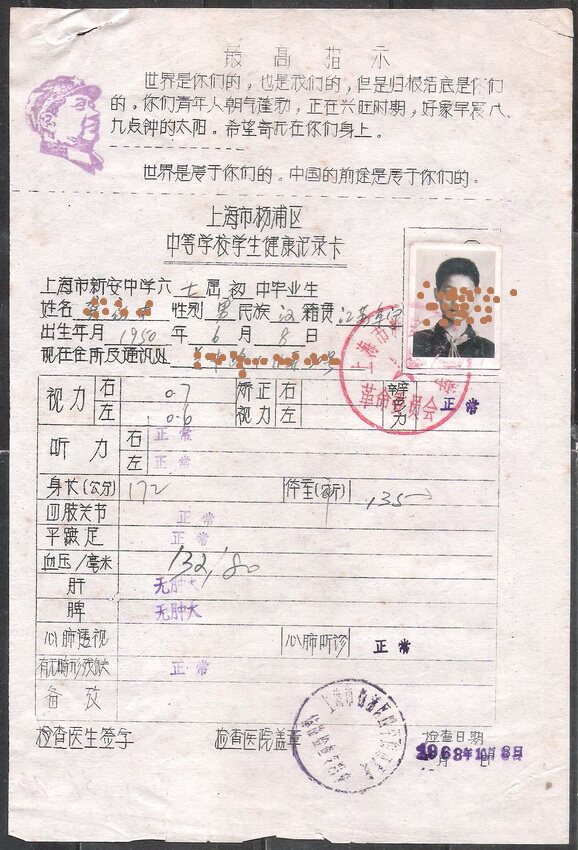 最高指示
世界是你们的，也是我们的，但是归根结底是你们
的。你们青年人朝气蓬勃，正在兴旺时期，好象早晨八、
九点钟的太阳。希望寄托在你们身上。
世界是属于你们的。中国的前途是属于你们的。
上海市杨浦区
中等学校学生健康记录卡
上海市新安中学六七届初中毕业生
姓名 性别 男 民族 汉 籍贯 江苏
出生年月 1950 年 6 月 8 日
现在住所及通讯处
革命委员会
视力 右 0.7 矫正视力 右 辨色力 正常
左 0.6 左
听力 右 正常
左 正常
身长(公分) 172 体重(公斤) 135
四肢关节 正常
平蹠足 正常
血压/毫米 132/80
肝 无肿大
脾 无肿大
心肺透视 心肺听诊 正常
有无畸形残缺 正常
备考
检查医生签字 检查医院盖章 检查日期
1968年10月8日
月 日